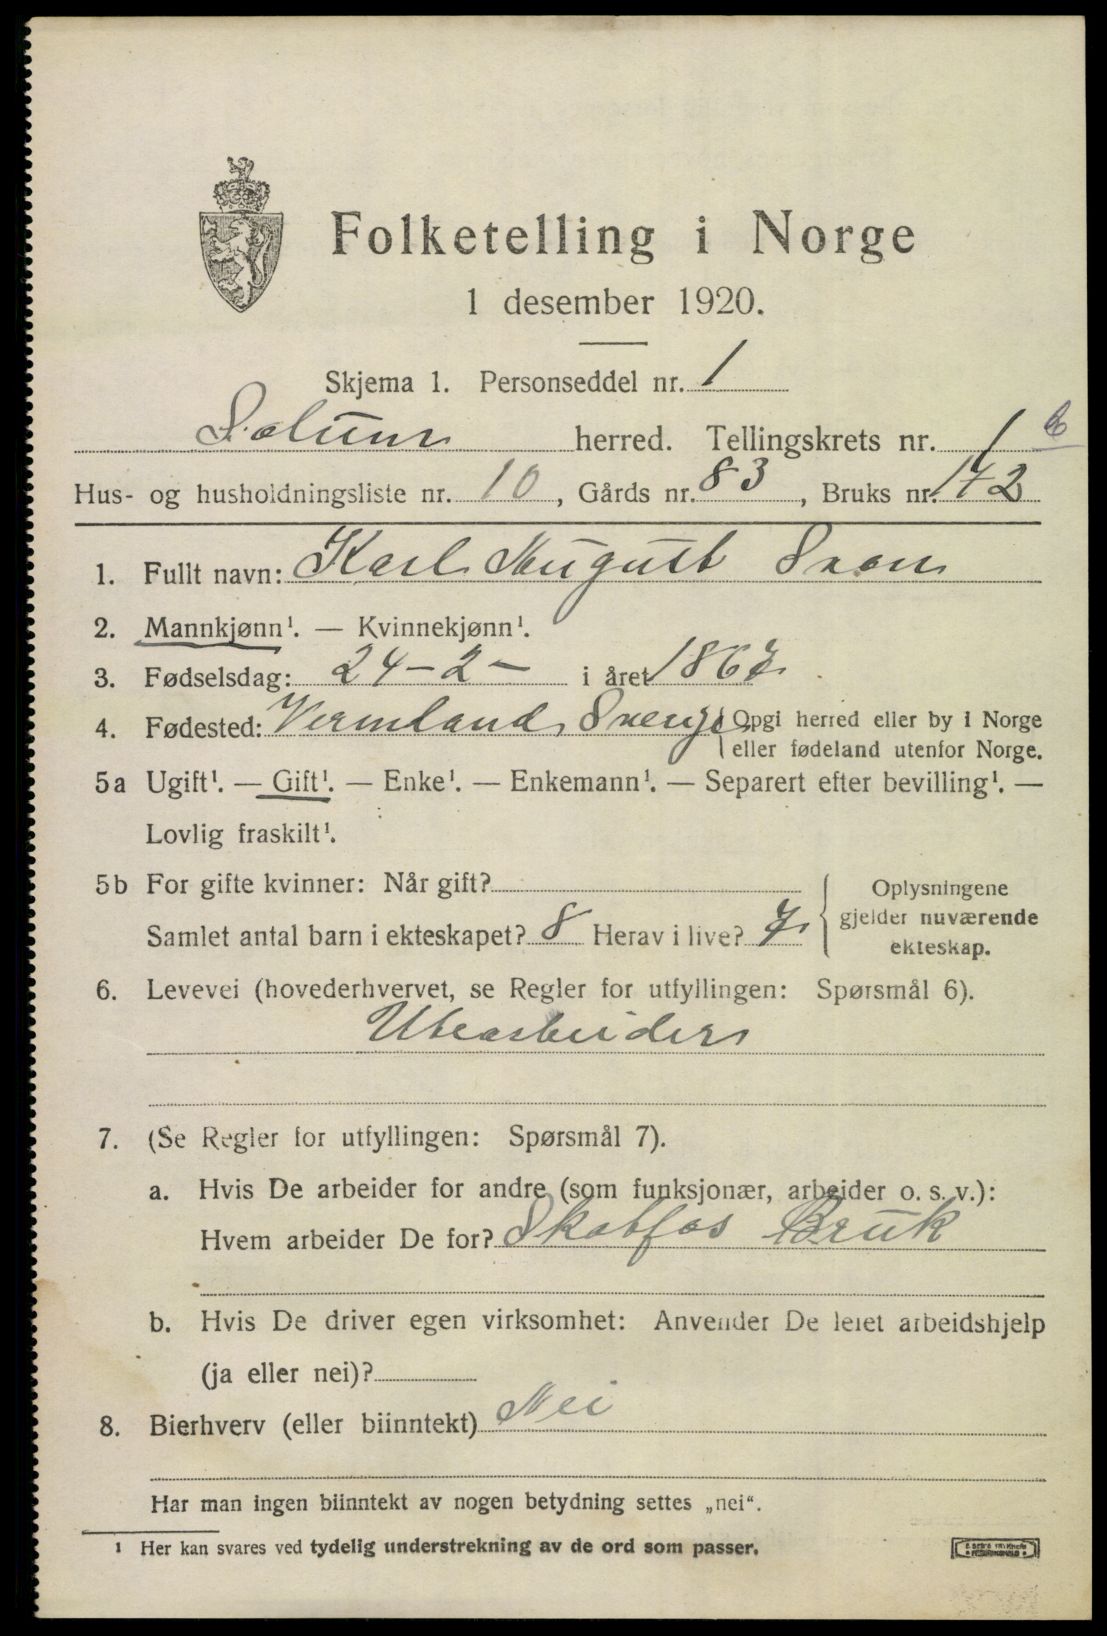 Folketelling i Norge
1 desember 1920.
Skjema 1. Personseddel nr. 1
Solum herred. Tellingskrets nr. 1
Hus- og husholdningsliste nr. 10, Gårds nr. 83, Bruks nr. 142
1. Fullt navn: Karl August Svan
2. Mannkjønn¹. — Kvinnekjønn¹.
3. Fødselsdag: 24-2- i året 1867
4. Fødested: Vermland Sverge {Opgi herred eller by i Norge
eller fødeland utenfor Norge.
5a Ugift¹. — Gift¹. — Enke¹. — Enkemann¹. — Separert efter bevilling¹. —
Lovlig fraskilt¹.
5b For gifte kvinner: Når gift?
Samlet antal barn i ekteskapet? 8 Herav i live? 7
{Oplysningene
gjelder nuværende
ekteskap.
6. Levevei (hovederhvervet, se Regler for utfyllingen: Spørsmål 6).
Utearbeider
7. (Se Regler for utfyllingen: Spørsmål 7).
a. Hvis De arbeider for andre (som funksjonær, arbeider o. s. v.):
Hvem arbeider De for? Skotfos Bruk
b. Hvis De driver egen virksomhet: Anvender De leiet arbeidshjelp
(ja eller nei)?
8. Bierhverv (eller biinntekt) Nei
Har man ingen biinntekt av nogen betydning settes „nei“.
¹ Her kan svares ved tydelig understrekning av de ord som passer.